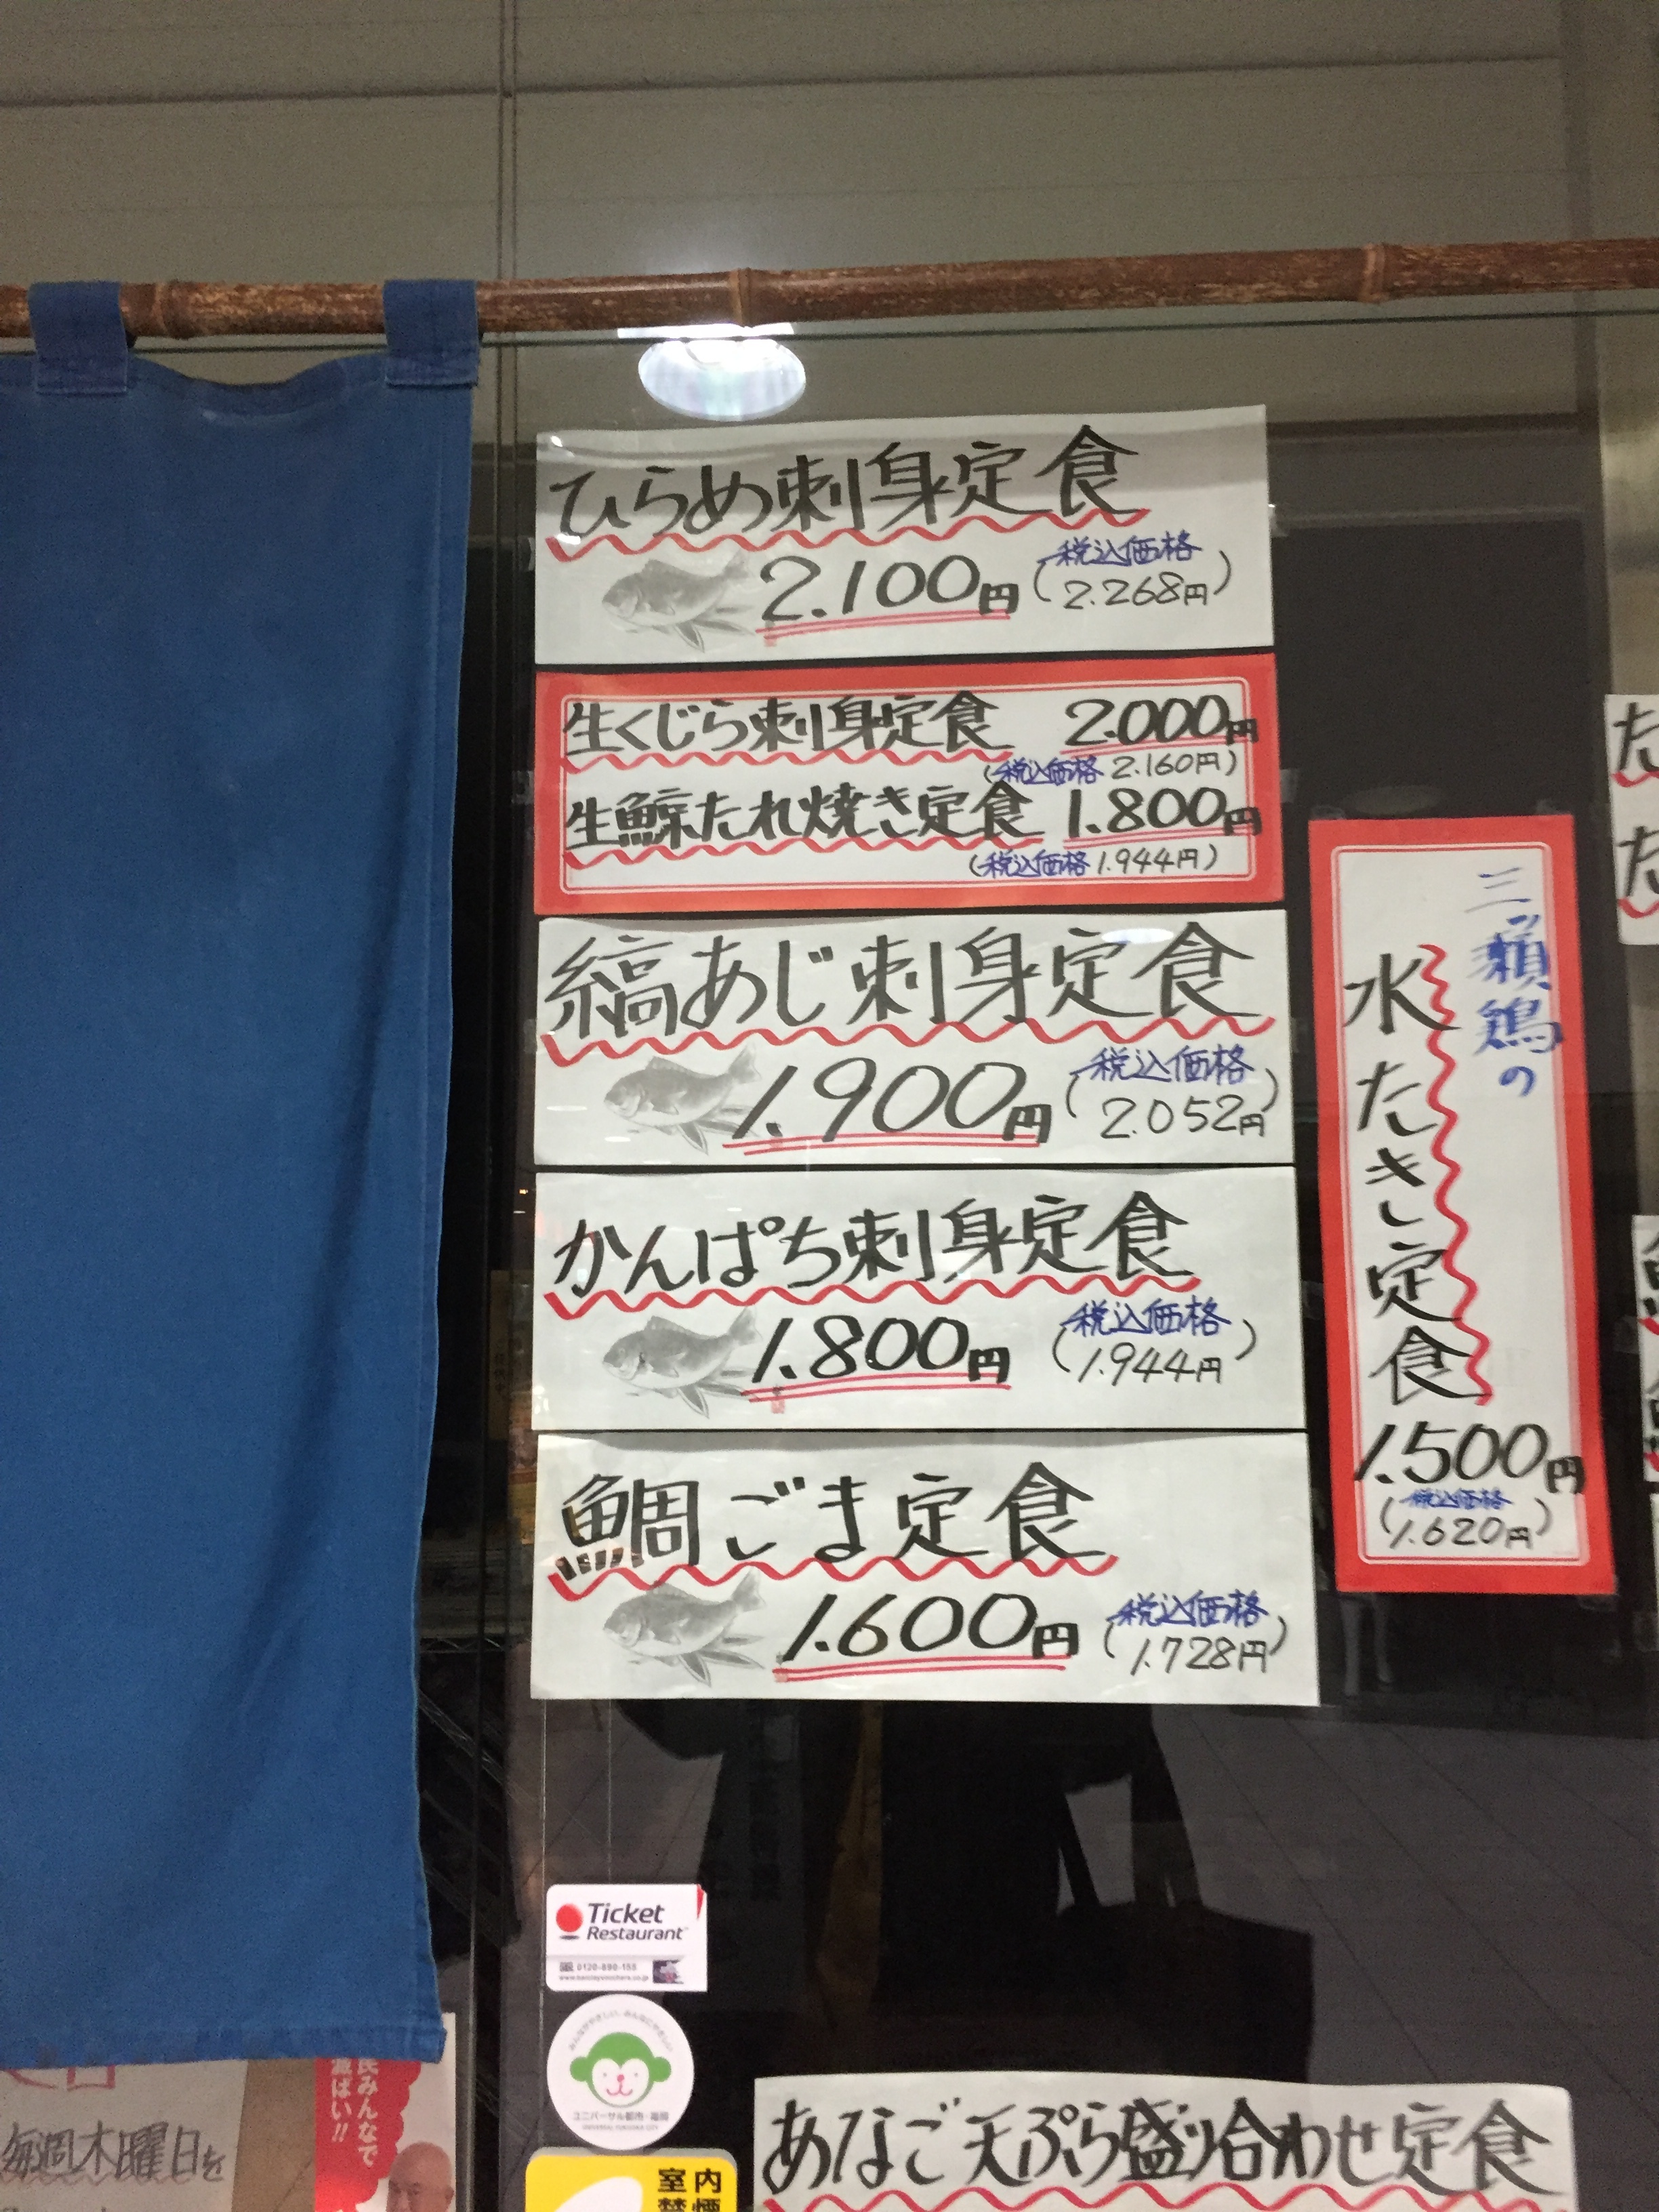 ひらめ刺身定食
2.100円
(税込価格
2.268円)
生くじら刺身定食 2.000円
(税込価格 2.160円)
生鯨たれ焼き定食 1.800円
(税込価格 1.944円)
縞あじ刺身定食
1.900円
(税込価格
2.052円)
かんぱち刺身定食
1.800円
(税込価格
1.944円)
鯛ごま定食
1.600円
(税込価格
1.728円)
三ッ瀬鶏の
水たき定食
1.500円
(税込価格
1.620円)
た
た
Ticket
Restaurant
0120-890-155
みんながやさしい、みんなにやさしい
ユニバーサル都市・福岡
UNIVERSAL FUKUOKA CITY
室内
禁煙
あなご天ぷら盛り合わせ定食
民みんなで
毎週木曜日を